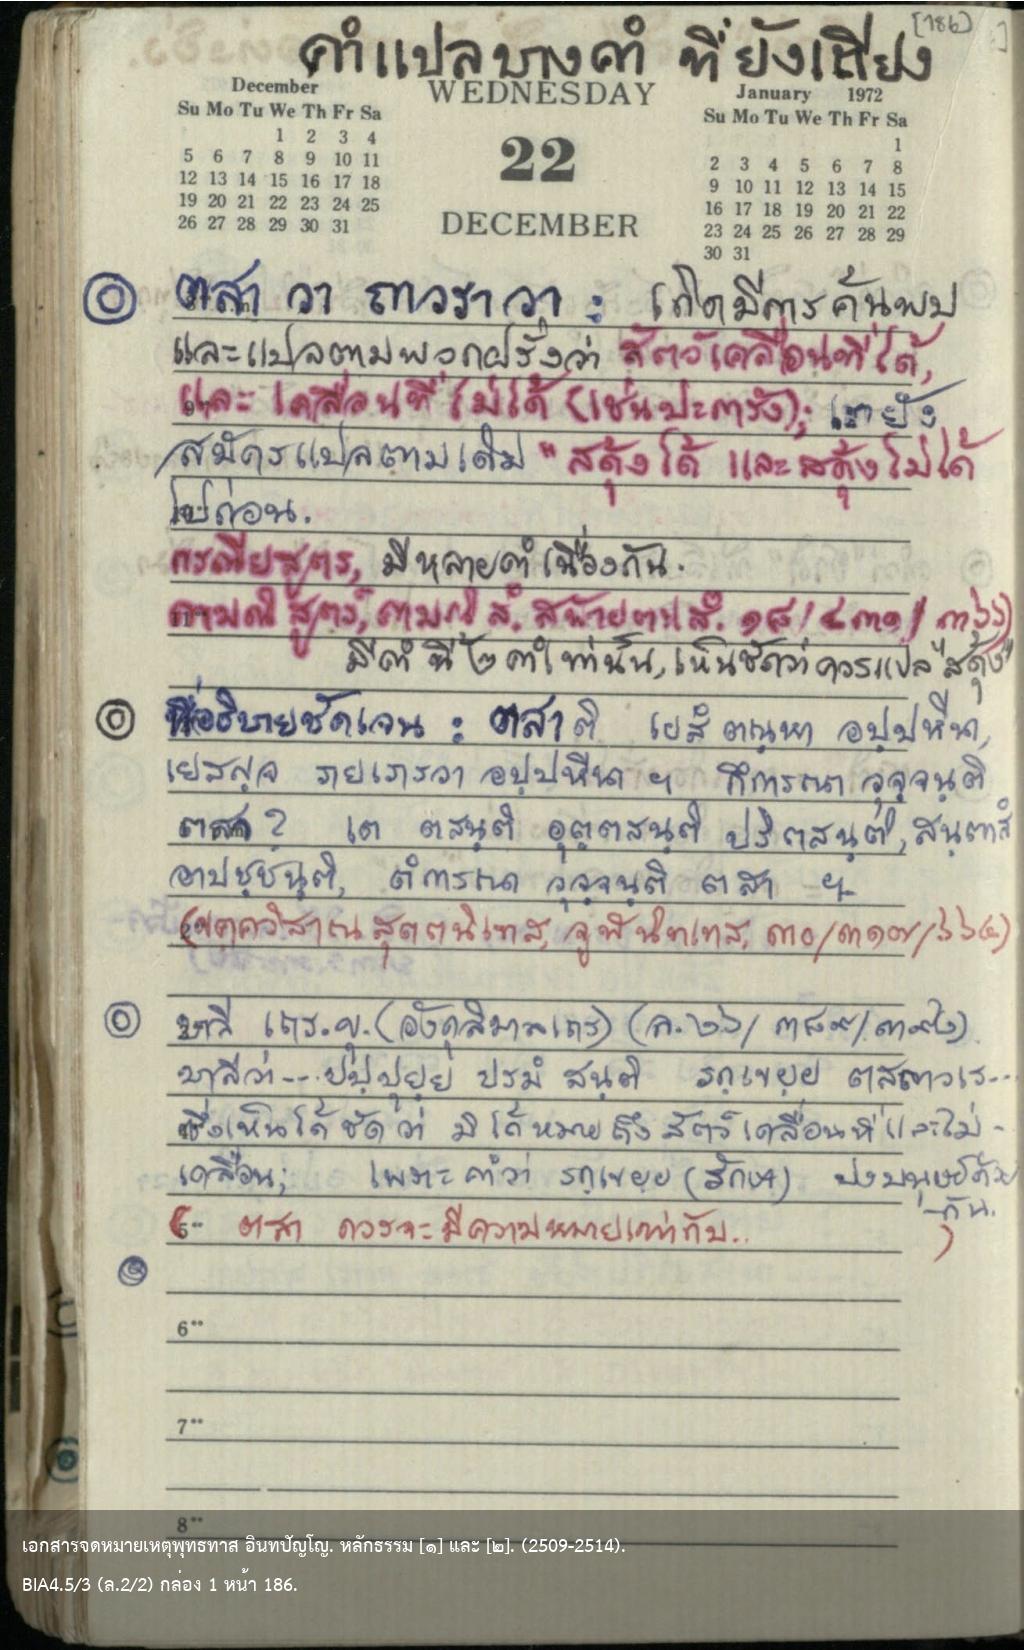 [186]
คำแปลบางคำ ที่ยังเถียง
December
Su Mo Tu We Th Fr Sa
1 2 3 4
5 6 7 8 9 10 11
12 13 14 15 16 17 18
19 20 21 22 23 24 25
26 27 28 29 30 31
WEDNESDAY
22
DECEMBER
January 1972
Su Mo Tu We Th Fr Sa
1
2 3 4 5 6 7 8
9 10 11 12 13 14 15
16 17 18 19 20 21 22
23 24 25 26 27 28 29
30 31
ตสา วา ถาวรา วา : เกิดมีการค้นพบ
และแปลตามพวกฝรั่งว่า สัตว์เคลื่อนที่ได้,
และ เคลื่อนที่ไม่ได้ (เช่นปะการัง); เรายัง
สมัครแปลตามเดิม "สดุ้งได้ และสดุ้งไม่ได้
ไปก่อน.
กรณียสูตร, มีหลายคำเนื่องกัน.
สูตร, สํ. สฬายตนสํ. ๑๘/๔๓๑/
มีคำนี้ ๒ คำเท่านั้น, เห็นชัดว่าควรแปล "สดุ้ง"
ที่อธิบายชัดเจน : ตสาติ เยสํ ตณฺหา อปฺปหีนา,
เยสญฺจ ภยเภรวา อปฺปหีนา ฯ กึการณา วุจฺจนฺติ
ตสา? เต ตสนฺติ อุตฺตสนฺติ ปริตสนฺติ, สนฺตาสํ
อาปชฺชนฺติ, ตํการณา วุจฺจนฺติ ตสา ฯ
(ขคฺควิสาณสุตฺตนิเทส, จูฬนิทเทส, ๓๐/๓๑๗/๖๖๔)
บาลี เถร.ขุ. (อังคุลิมาลเถร) (ล. ๒๖/๓๘๙/๓๙๒)
บาลีว่า--- ปปฺปุยฺย ปรมํ สนฺติ รกฺเขยฺย ตสถาวเร---
ซึ่งเห็นได้ชัดว่า มิได้หมายถึงสัตว์เคลื่อนที่และไม่-
เคลื่อน; เพราะคำว่า รกฺเขยฺย (รักษา) บ่งมนุษย์ด้วย
กัน.
5 ตสา ควรจะมีความหมายเท่ากับ..
6
7
8
เอกสารจดหมายเหตุพุทธทาส อินทปัญโญ. หลักธรรม [๑] และ [๒]. (2509-2514).
BIA4.5/3 (ล.2/2) กล่อง 1 หน้า 186.